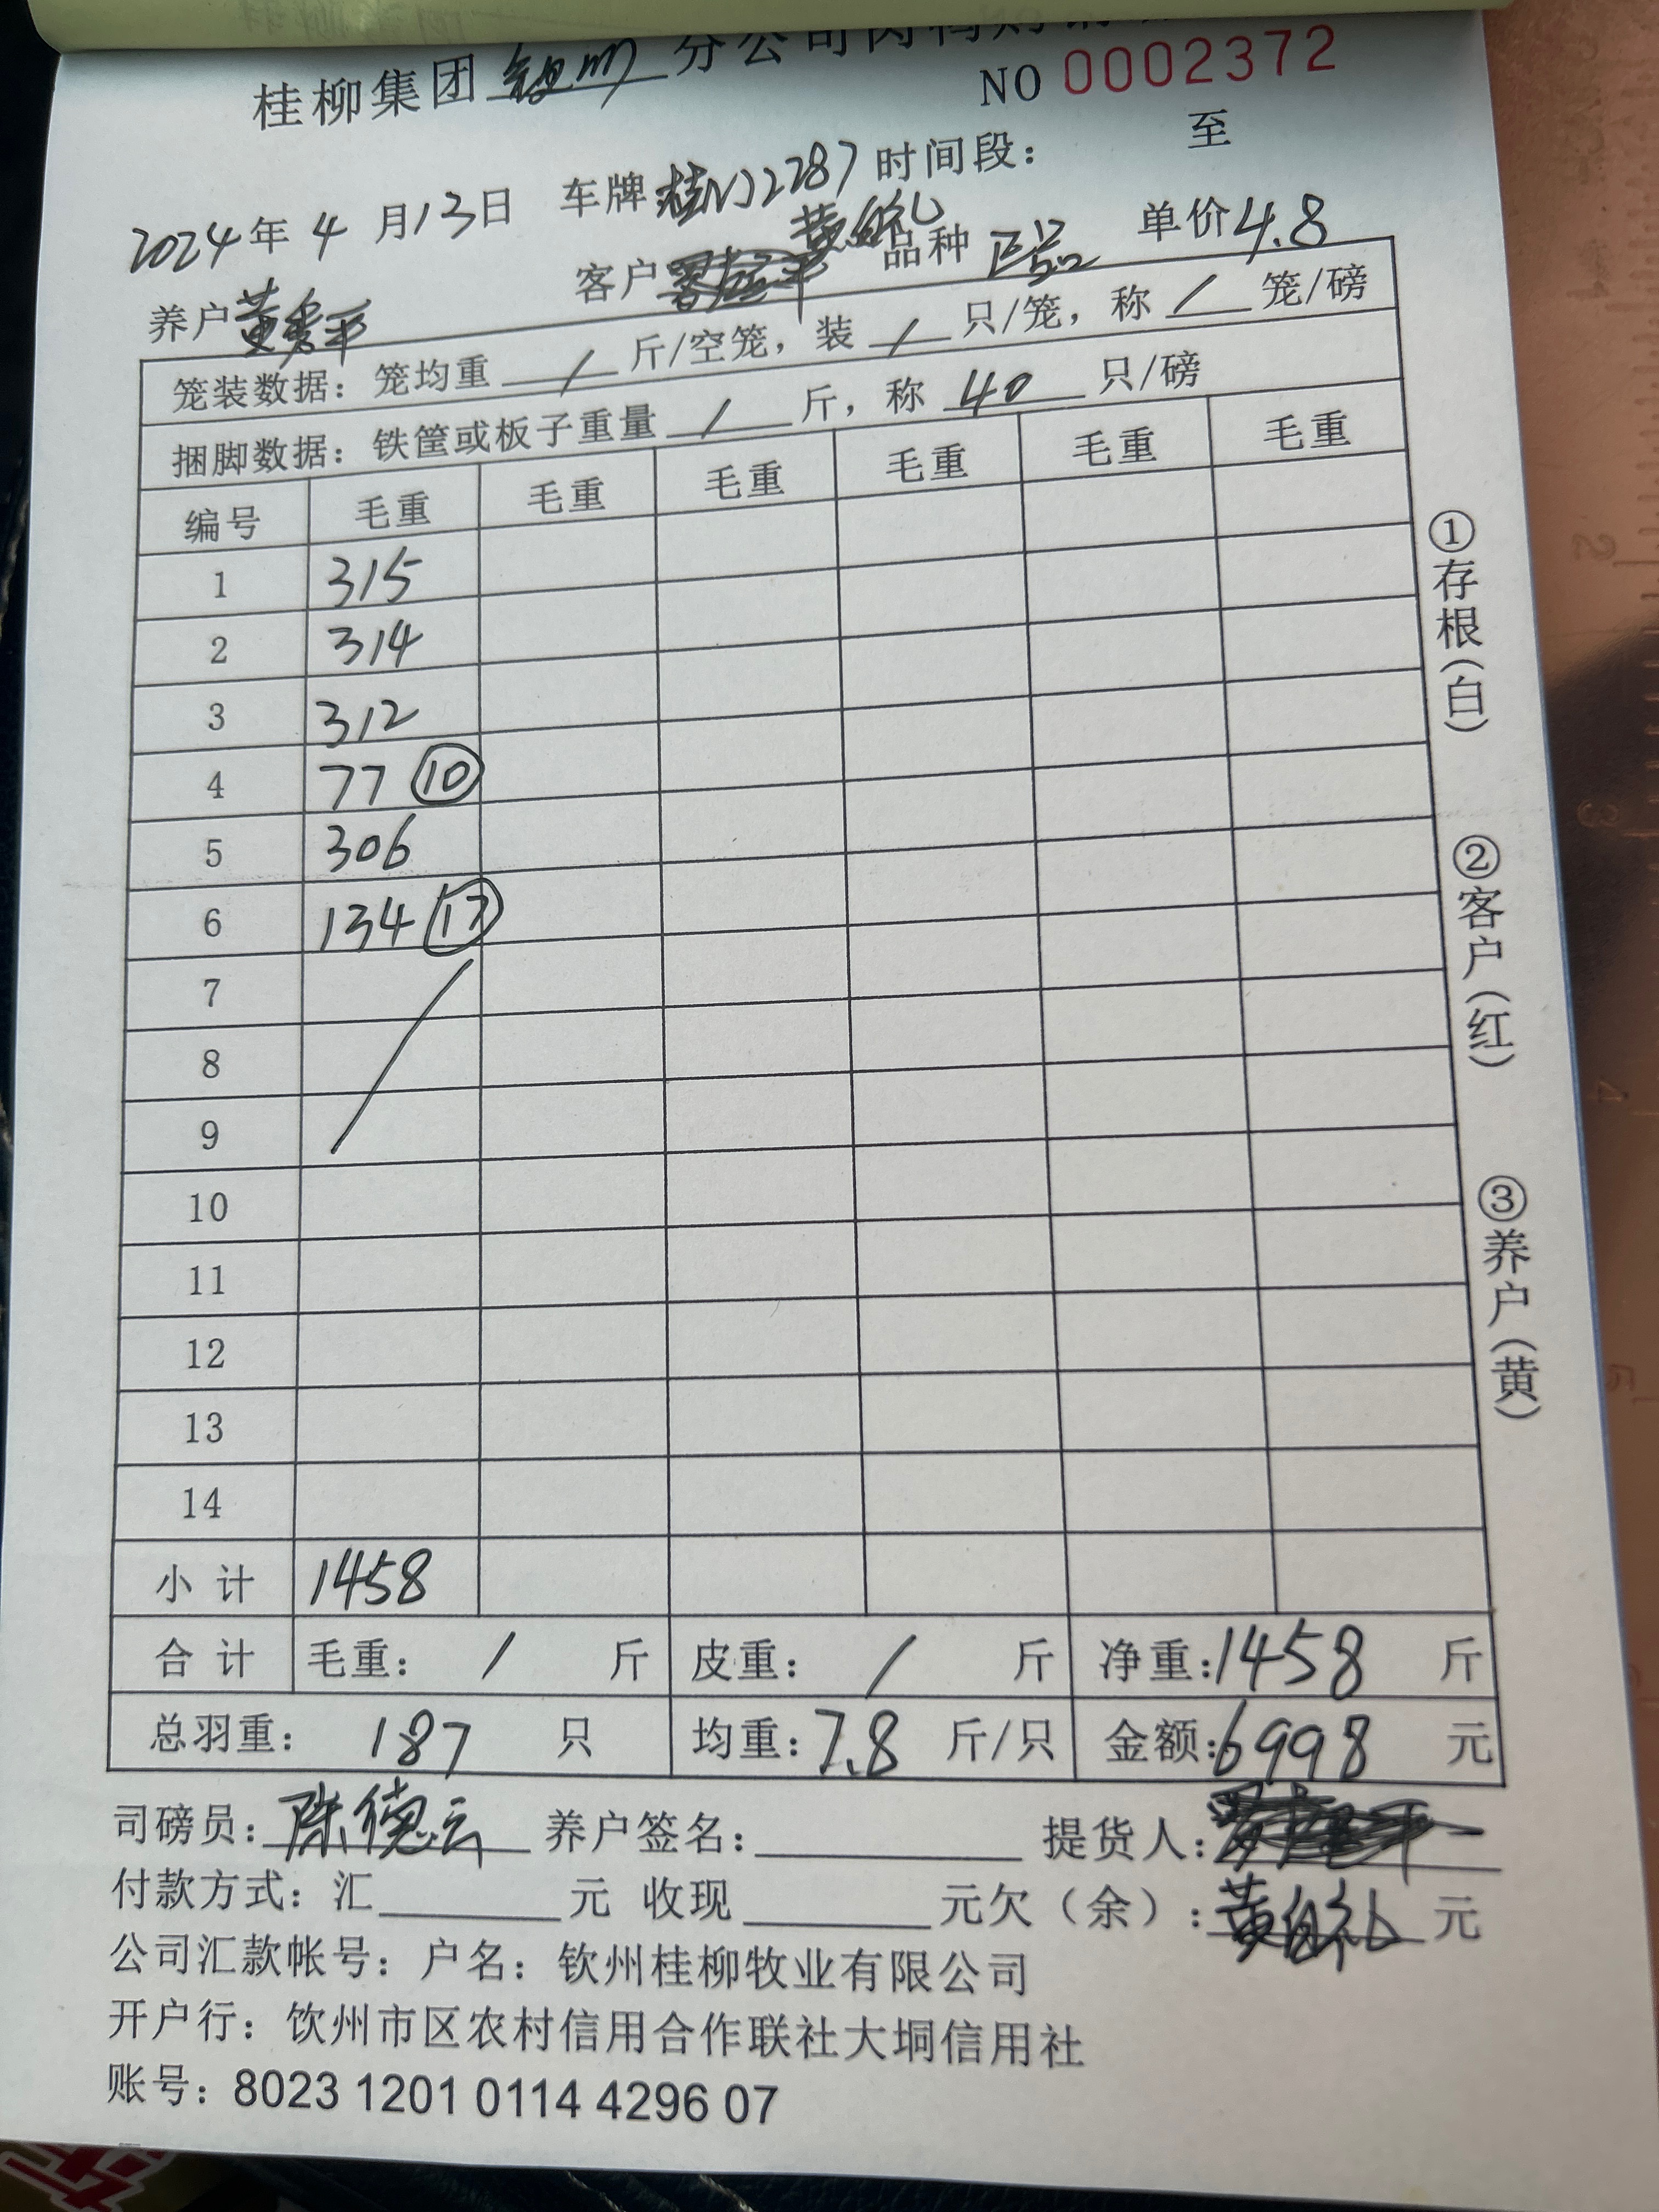 桂柳集团 钦州 分公司肉鸭购销
NO 0002372
2024年 4 月13日 车牌 桂N12287 时间段： 至
养户 黄秀平 客户 黄自礼 品种 正品 单价4.8
笼装数据：笼均重 / 斤/空笼，装 / 只/笼，称 / 笼/磅
捆脚数据：铁筐或板子重量 / 斤，称 40 只/磅
编号 毛重 毛重 毛重 毛重 毛重 毛重
1 315
2 314
3 312
4 77 ⑩
5 306
6 134 ⑰
7
8
9
10
11
12
13
14
小 计 1458
合 计 毛重： / 斤 皮重： / 斤 净重：1458 斤
总羽重： 187 只 均重：7.8 斤/只 金额：6998 元
司磅员：陈德云 养户签名： 提货人：
付款方式：汇 元 收现 元欠（余）：黄自礼 元
公司汇款帐号：户名：钦州桂柳牧业有限公司
开户行：饮州市区农村信用合作联社大垌信用社
账号：8023 1201 0114 4296 07
①存根（白）
②客户（红）
③养户（黄）